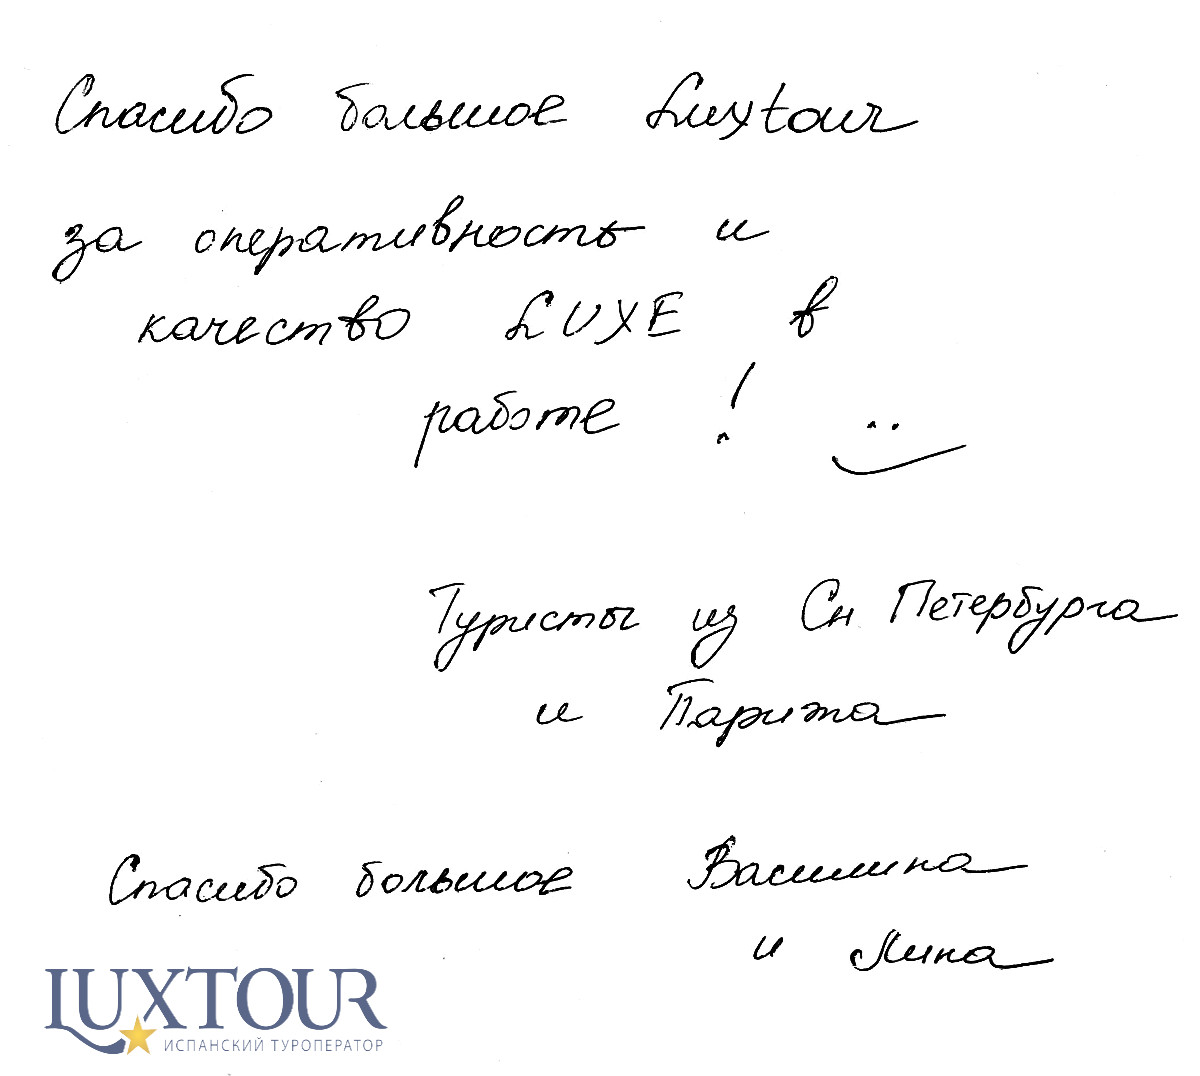 Спасибо большое Luxtour
за оперативность и
качество LUXE в
работе !
Туристы из Сн Петербурга
и Парижа
Спасибо большое Василина
и Лина
LUXTOUR
ИСПАНСКИЙ ТУРОПЕРАТОР